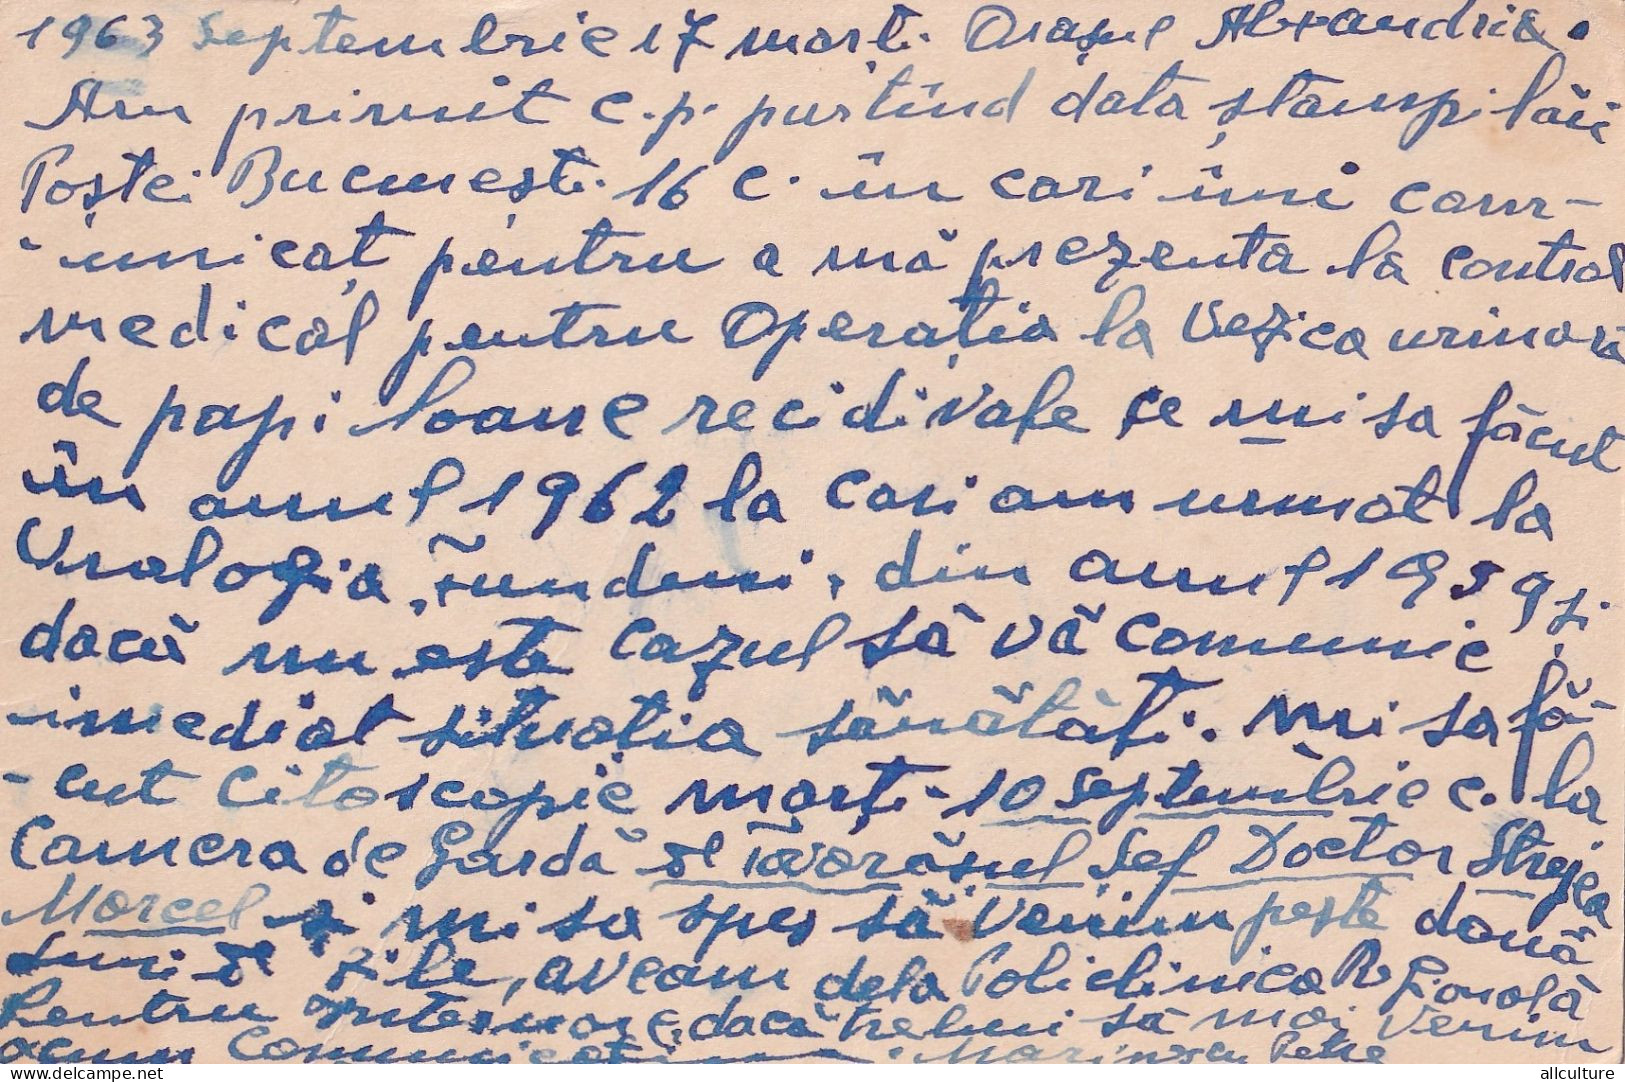 1963 Septembrie 17 marti. Orașul Alexandria.
Am primit c.p. purtînd data ștampilăii
Poștei București 16 c. în cari îmi com-
unicat pentru a mă prezenta la control
medical pentru Operația la Vezica urinară
de papiloane recidivate ce mi sa făcut
în anul 1962 la cari am urmat la
Urologia, Fundeni, din anul 1959 și
dacă nu este cazul să vă comunic
imediat situatia sănătăți. Mi sa fă-
-cut Citoscopie marți - 10 Septembrie c. la
Camera de Gardă de Tovarășul Șef Doctor Strejea
Marcel și mi sa spus să venim peste două
luni de zile, aveam dela Policlinica Regională
Pentru Internare, dacă trebui să mai venim
acum Comunicati Marinescu Petre
www.delcampe.net
allculture